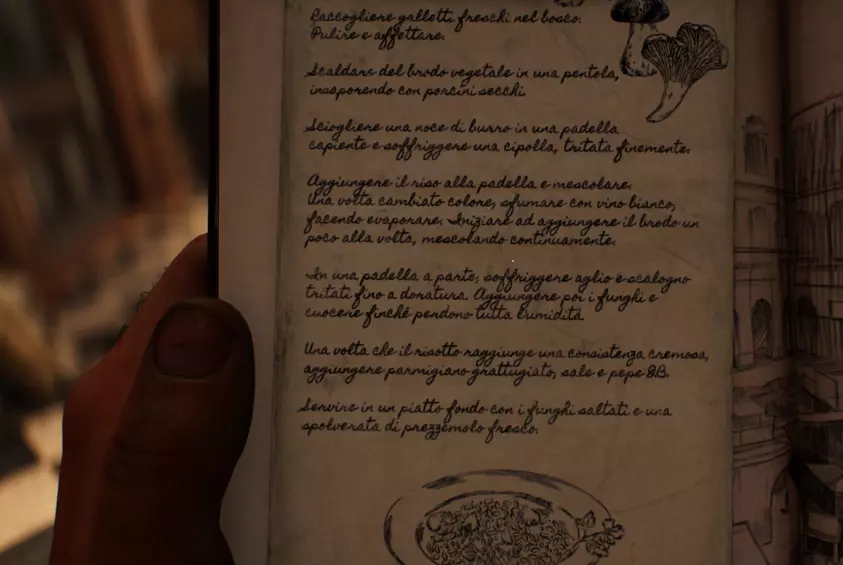 Raccogliere galletti freschi nel bosco.
Pulire e affettare.
Scaldare del brodo vegetale in una pentola,
insaporendo con porcini secchi.
Sciogliere una noce di burro in una padella
capiente e soffriggere una cipolla, tritata finemente.
Aggiungere il riso alla padella e mescolare.
Una volta cambiato colore, sfumare con vino bianco,
facendo evaporare. Iniziare ad aggiungere il brodo un
poco alla volta, mescolando continuamente.
In una padella a parte, soffriggere aglio e scalogno
tritati fino a doratura. Aggiungere poi i funghi e
cuocere finché pendono tutta l'umidità
Una volta che il risotto raggiunge una consistenza cremosa,
aggiungere parmigiano grattugiato, sale e pepe QB.
Servire in un piatto fondo con i funghi saltati e una
spolverata di prezzemolo fresco.